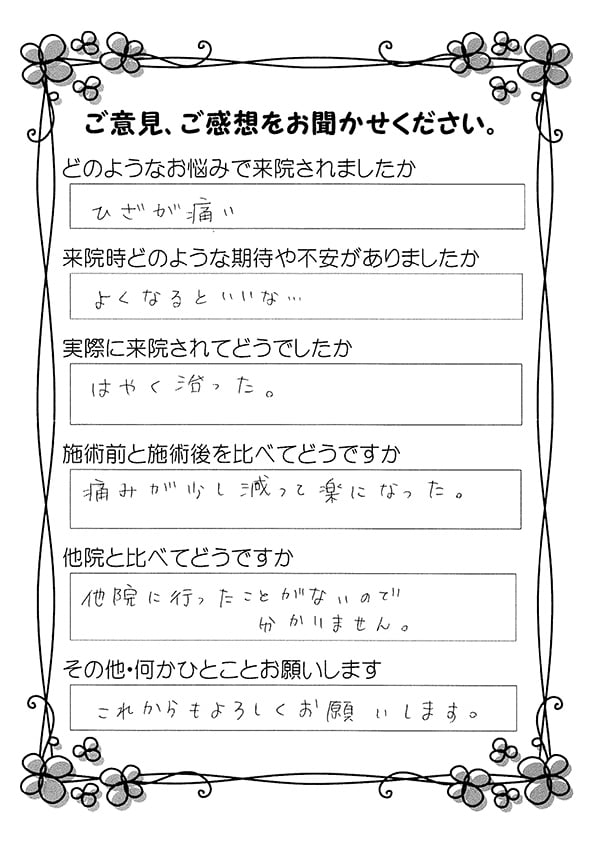 ご意見、ご感想をお聞かせください。
どのようなお悩みで来院されましたか
ひざが痛い
来院時どのような期待や不安がありましたか
よくなるといいな…
実際に来院されてどうでしたか
はやく治った。
施術前と施術後を比べてどうですか
痛みが少し減って楽になった。
他院と比べてどうですか
他院に行ったことがないので
分かりません。
その他・何かひとことお願いします
これからもよろしくお願いします。